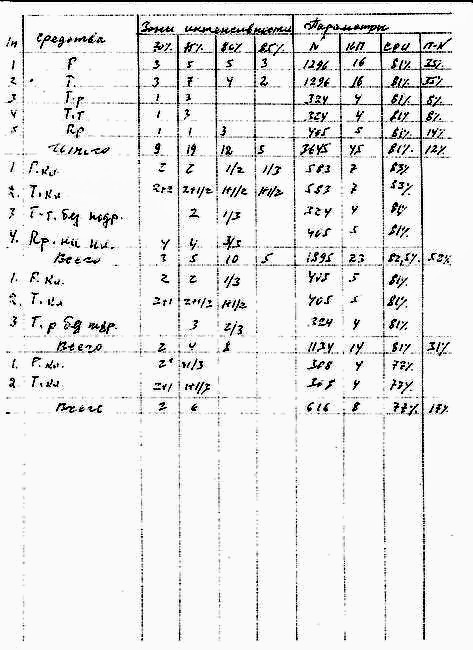 Зоны интенсивности Параметры
/п Средства 70% 75% 80% 85% N КПП СОИ П-N
1 Р 3 5 5 3 1296 16 81% 35%
2 Т 3 7 4 2 1296 16 81% 35%
3 Т.р 1 3 324 4 81% 8%
4 Т.т 1 3 324 4 81% 8%
5 Rр 1 1 3 405 5 81% 14%
9 19 12 5 3645 45 81% 12%
1 Р.кл. 2 2 1/2 1/3 583 7 83%
2. Т.кл 2+2 2+1/2 1+1/2 1+1/2 583 7 83%
3 Т-Т. без подр. 2 1/3 324 4 81%
4. Rр. на кл. 4 4 3/3 405 5 81%
Всего 3 5 10 5 1895 23 82,5% 52%
1. Р.кл. 2 2 1/3 405 5 81%
2. Т.кл 2+1 2+1/2 1+1/2 405 5 81%
3 Т.р без 3 2/3 324 4 81%
Всего 2 4 8 1134 14 81% 31%
1. Р.кл. 308 4 77%
2 Т.кл. 2+1 1+1/3 308 4 77%
Всего 2 6 616 8 77% 17%